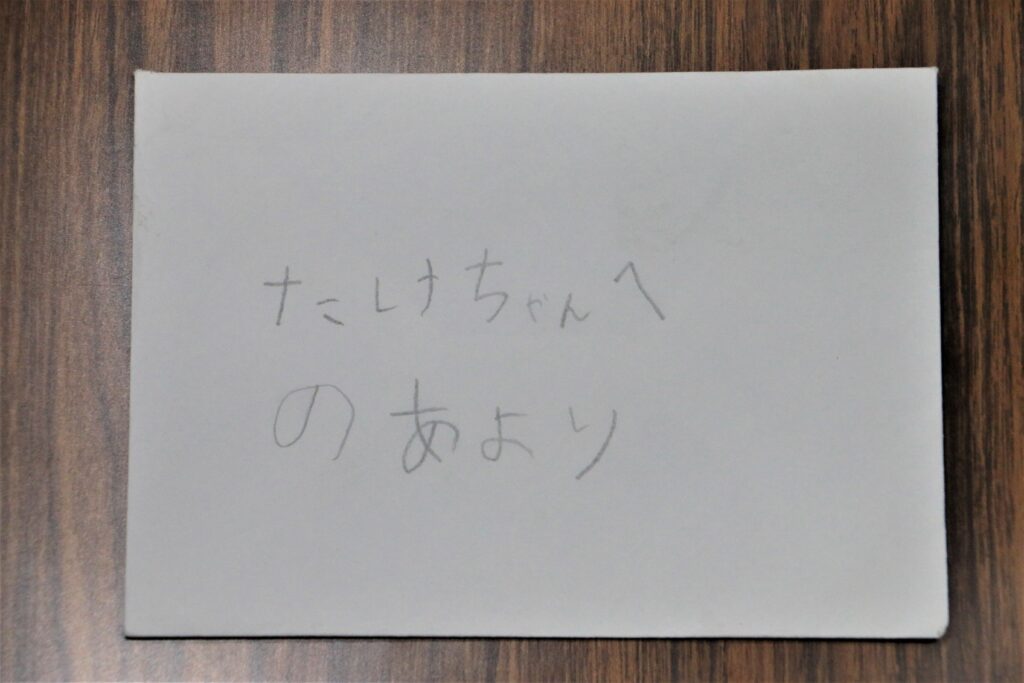 たけちゃんへ
のあより